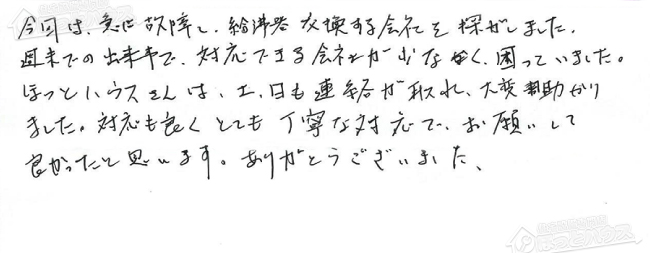 今回は、急に故障し、給湯器交換する会社を探がしました。
週末での出来事で、対応できる会社が少なく、困っていました。
ほっとハウスさんは、土、日も連絡が取れ、大変助かり
ました。対応も良くとても丁寧な対応で、お願いして
良かったと思います。ありがとうございました、